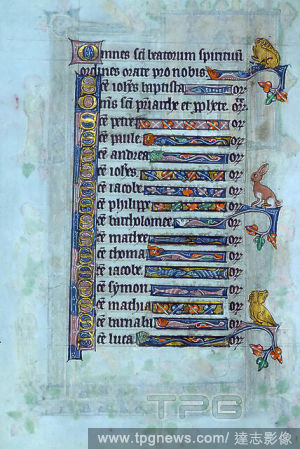 Omnes sci beatorum spirituu
ordines orate pro nobis.
sce iohs baptista or
Oms sci priarche et pphete. or.
Sce petre or
sce paule or
sce andrea or
sce iohs or
sce iacobe or
sce philippe or
sce bartholomee or
sce mathee or
sce thoma or
sce iacobe or
sce symon or
sce mathia or
sce barnaba or
sce luca or
TPG
www.tpgnews.com/ 達志影像